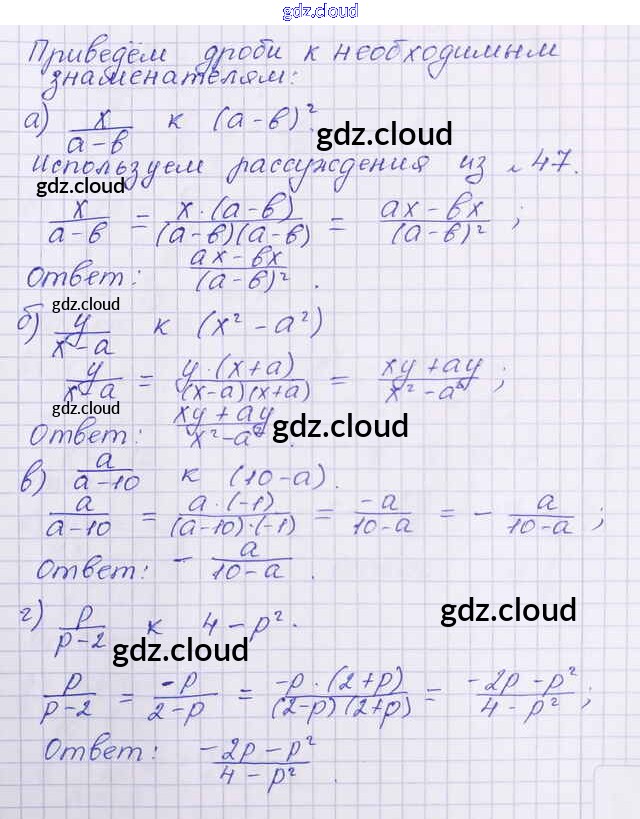 gdz.cloud
Приведём дроби к необходимым
знаменателям:
а) x/(a-b) к (a-b)².
gdz.cloud
Используем рассуждения из №47.
gdz.cloud
x/(a-b) = x·(a-b)/((a-b)(a-b)) = (ax-bx)/(a-b)²;
Ответ: (ax-bx)/(a-b)².
gdz.cloud
б) y/(x-a) к (x²-a²)
gdz.cloud
y/(x-a) = y·(x+a)/((x-a)(x+a)) = (xy+ay)/(x²-a²);
gdz.cloud
Ответ: (xy+ay)/(x²-a²).
gdz.cloud
в) a/(a-10) к (10-a).
a/(a-10) = a·(-1)/((a-10)·(-1)) = -a/(10-a) = -a/(10-a);
Ответ: -a/(10-a).
г) p/(p-2) к 4-p².
gdz.cloud
gdz.cloud
p/(p-2) = -p/(2-p) = -p·(2+p)/((2-p)(2+p)) = (-2p-p²)/(4-p²);
Ответ: (-2p-p²)/(4-p²).